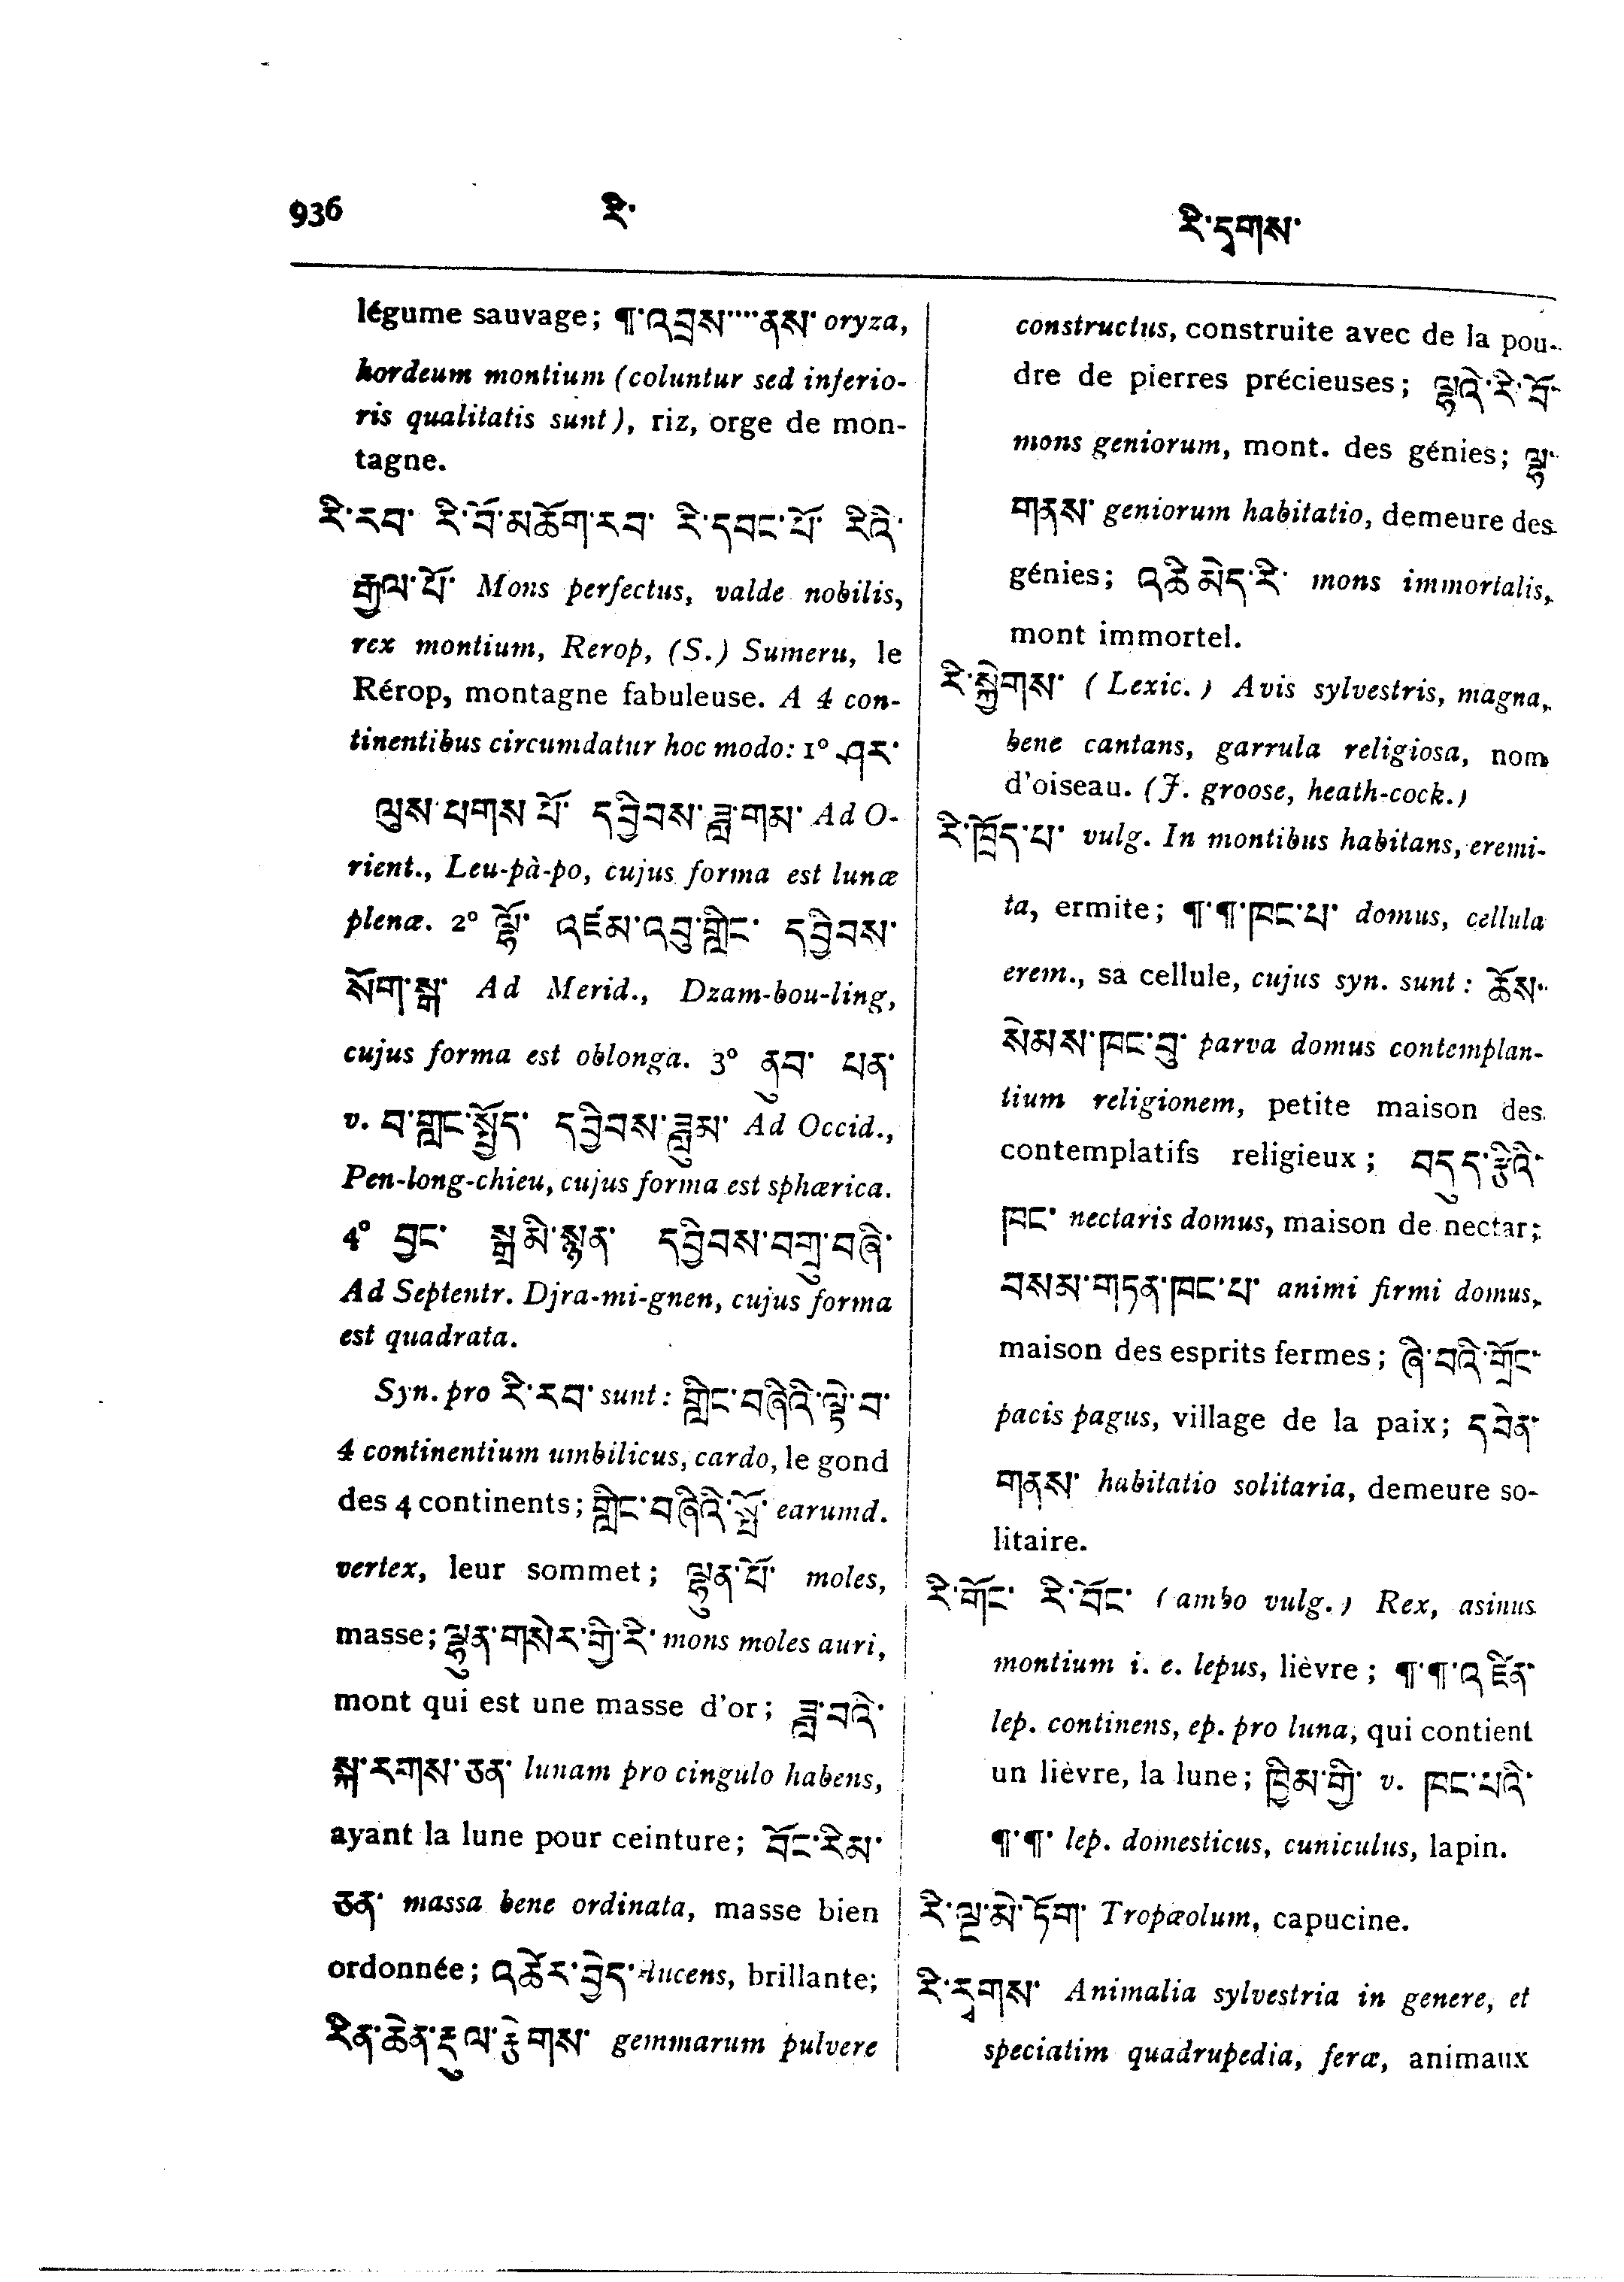 936 རི་ རི་དྭགས་
légume sauvage; ¶་འབྲས་...ནས་ oryza,
hordeum montium (coluntur sed inferio-
ris qualitatis sunt), riz, orge de mon-
tagne.
རི་རབ་ རི་བོ་མཆོག་རབ་ རི་དབང་པོ་ རིའི་
རྒྱལ་པོ་ Mons perfectus, valde nobilis,
rex montium, Rerop, (S.) Sumeru, le
Rérop, montagne fabuleuse. A 4 con-
tinentibus circumdatur hoc modo: 1° ཤར་
ལུས་པགས་པོ་ དབྱིབས་ཟླ་གམ་ Ad O-
rient., Leu-pà-po, cujus forma est lunæ
plenæ. 2° ལྷོ་ འཛམ་འབུ་གླིང་ དབྱིབས་
སོག་སྒ་ Ad Merid., Dzam-bou-ling,
cujus forma est oblonga. 3° ནུབ་ པན་
v. བ་གླང་སྤྱོད་ དབྱིབས་ཟླུམ་ Ad Occid.,
Pen-long-chieu, cujus forma est sphærica.
4° བྱང་ སྒྲ་མི་སྙན་ དབྱིབས་བགྲུ་བཞི་
Ad Septentr. Djra-mi-gnen, cujus forma
est quadrata.
Syn. pro རི་རབ་ sunt: གླིང་བཞིའི་ལྟེ་བ་
4 continentium umbilicus, cardo, le gond
des 4 continents; གླིང་བཞིའི་སྤྲོ་ earumd.
vertex, leur sommet; ལྷུན་པོ་ moles,
masse; ལྷུན་གསེར་གྱི་རི་ mons moles auri,
mont qui est une masse d'or; ཟླ་བའི་
སྐ་རགས་ཅན་ lunam pro cingulo habens,
ayant la lune pour ceinture; བོང་རིམ་
ཅན་ massa bene ordinata, masse bien
ordonnée; འཚེར་བྱེད་ lucens, brillante;
རིན་ཆེན་རྡུལ་རྩེགས་ gemmarum pulvere
constructus, construite avec de la pou-
dre de pierres précieuses; ལྷའི་རི་བོ་
mons geniorum, mont. des génies; ལྷ་
གནས་ geniorum habitatio, demeure des
génies; འཆི་མེད་རི་ mons immortalis,
mont immortel.
རི་སྐྱེགས་ (Lexic.) Avis sylvestris, magna,
bene cantans, garrula religiosa, nom
d'oiseau. (J. groose, heath-cock.)
རི་ཁྲོད་པ་ vulg. In montibus habitans, eremi-
ta, ermite; ¶་¶་ཁང་པ་ domus, cellula
erem., sa cellule, cujus syn. sunt: ཆོས་
སེམས་ཁང་བུ་ parva domus contemplan-
tium religionem, petite maison des
contemplatifs religieux; བདུད་རྩིའི་
ཁང་ nectaris domus, maison de nectar;
བསམ་གཏན་ཁང་པ་ animi firmi domus,
maison des esprits fermes; ཞི་བའི་གྲོང་
pacis pagus, village de la paix; དབེན་
གནས་ habitatio solitaria, demeure so-
litaire.
རི་གོང་ རི་བོང་ (ambo vulg.) Rex, asinus
montium i. e. lepus, lièvre; ¶་¶་འཛིན་
lep. continens, ep. pro luna, qui contient
un lièvre, la lune; ཁྱིམ་གྱི་ v. ཁང་པའི་
¶་¶་ lep. domesticus, cuniculus, lapin.
རི་ལྔ་མེ་ཏོག་ Tropæolum, capucine.
རི་དྭགས་ Animalia sylvestria in genere, et
speciatim quadrupedia, feræ, animaux